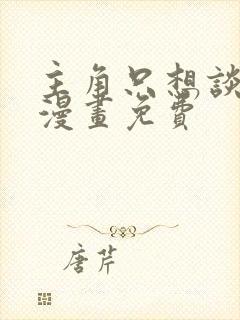 主角只想談
漫畫免費
唐芹